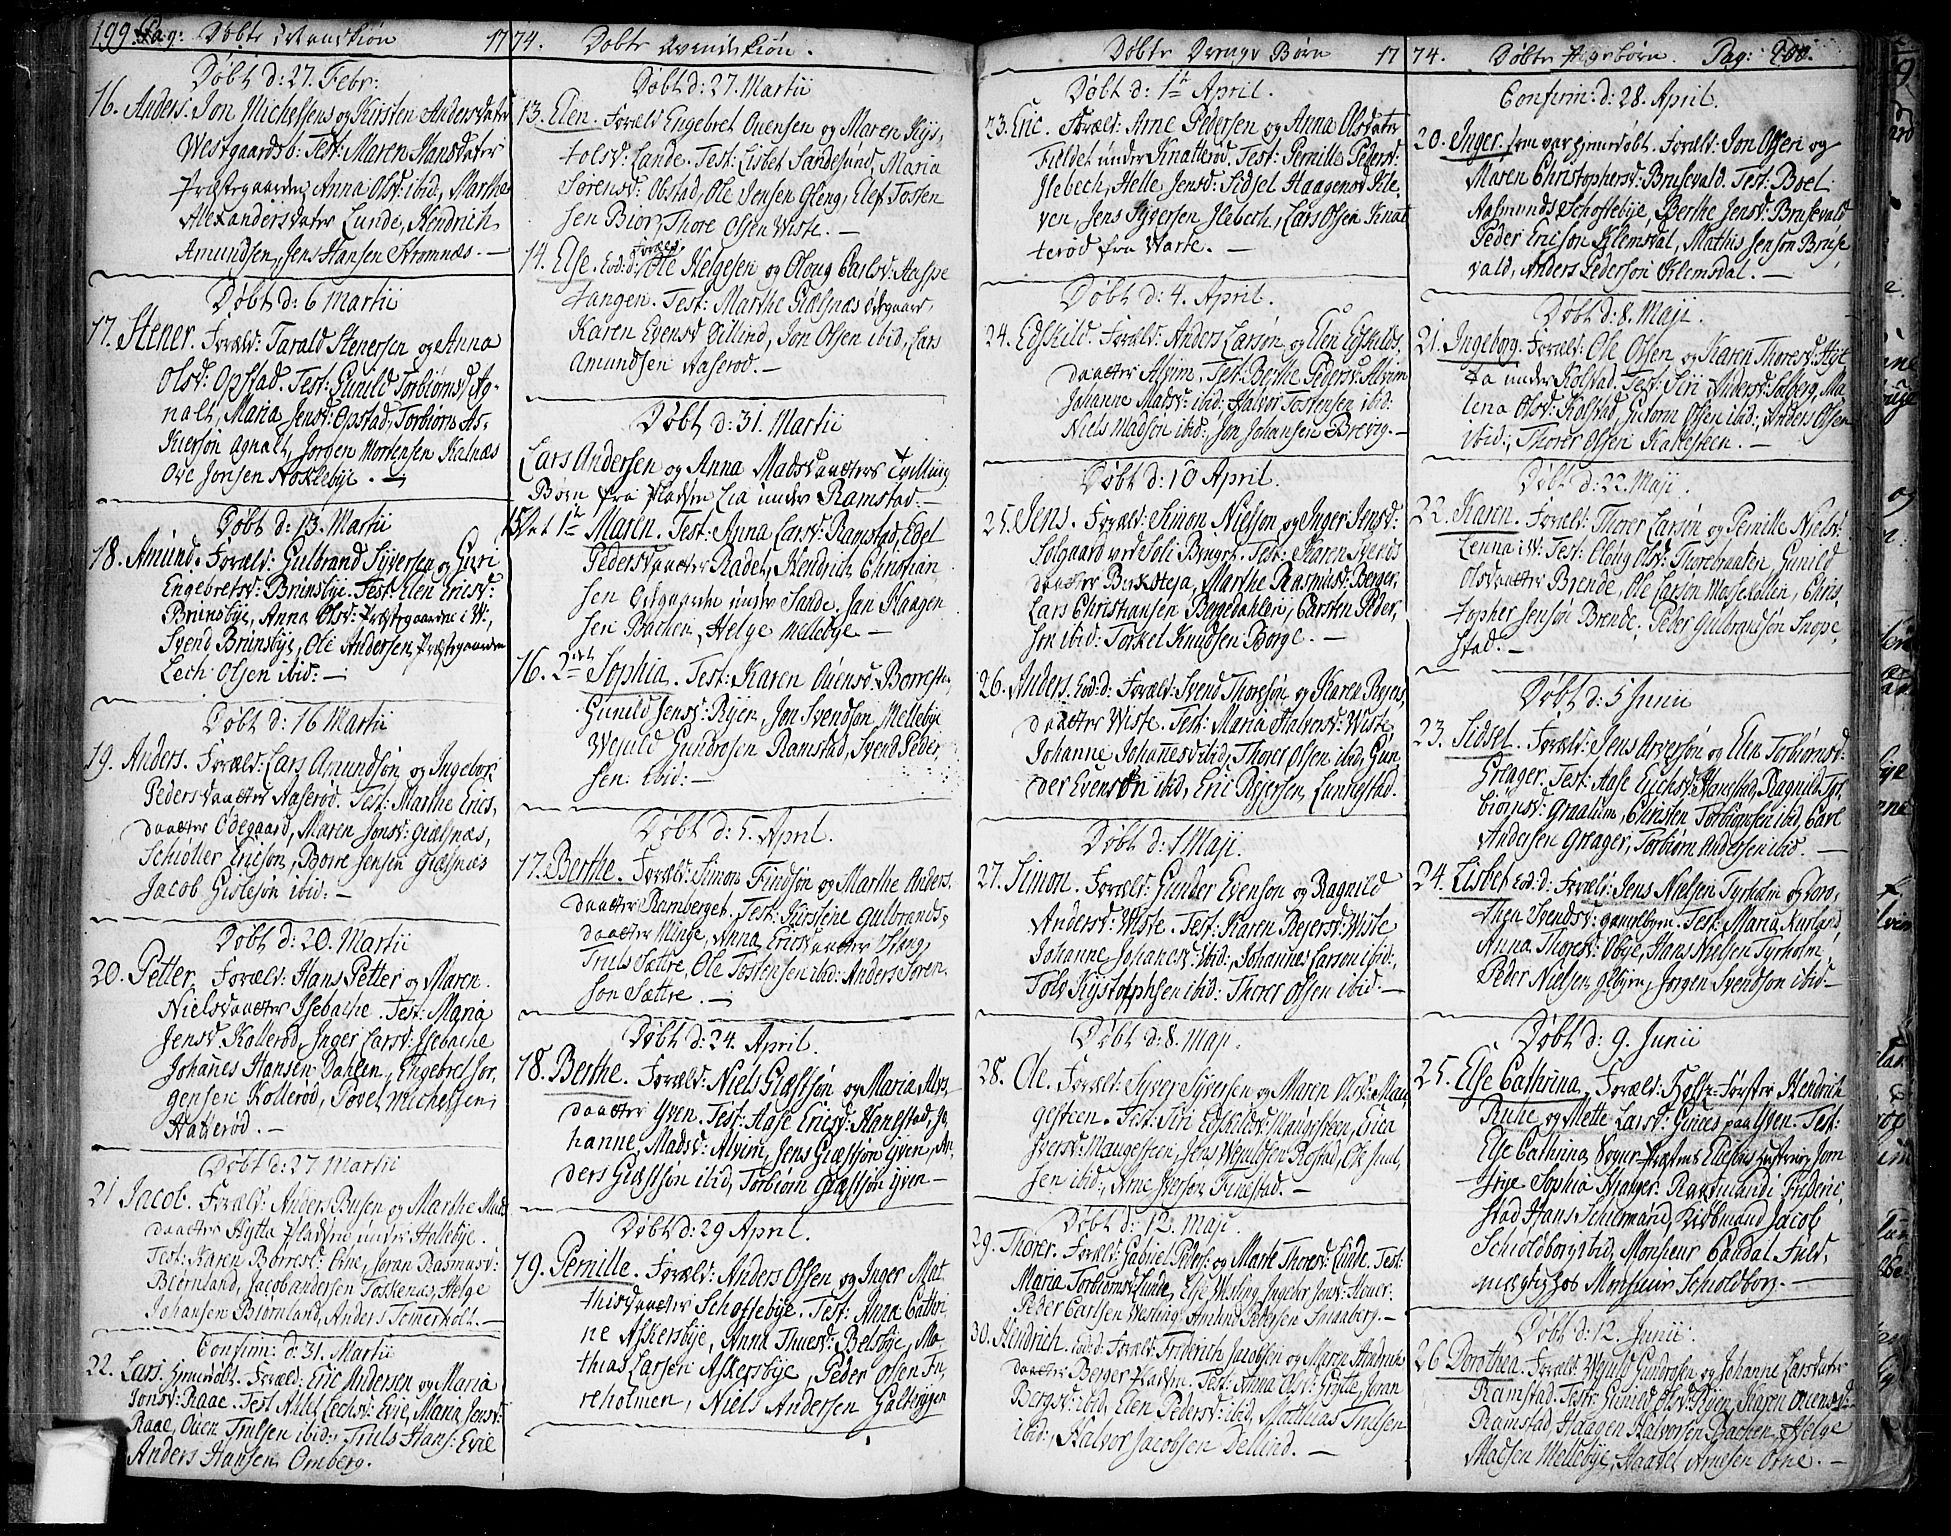 199. Pag: Døbte Mandkiøn 17
Døbt d: 27. Febr:
16. Anders. Jon Michelsens og Kirsten Andersdater
Westgaards b: Test: Maren Hansdater
Præstegaarden, Anna Olsd: ibid, Marthe
Alexandersdater Lunde, Hendrich
Amundsen, Jens Hansen Strømnæs. —
Døbt d: 6 Martii
17. Stener. Foræld: Tarald Stenersen og Anna
Olsd: Opstad. Test: Gunild Torbiørnsd: Ag-
nalt, Maria Jensd: Opstad, Torbiørn As-
Kiersøn Agnalt, Jørgen Mortensen Kalnæs
Ove Jonsen Nøklebye. —
Døbt d: 13. Martii
18. Amund. Foræld: Gulbrand Syversen og Guri
Engebretsd: Brunsbye. Test: Elen Ericsd:
Brunsbye, Anna Olsd: Præstegaardene i W:,
Svend Brunsbye, Ole Andersen, Præstegaarden
Lech Olsen ibid: —
Døbt d: 16 Martii
19. Anders. Foræld: Lars Amundsøn og Ingebor
Pedersdaatter Aaserød. Test: Marthe Erics,
daatter Ødegaard, Maren Jonsd: Giælsnæs,
Schiøller Ericsøn, Borre Jensen Giælsnæs
Jacob Gislesøn ibid: —
Døbt d: 20. Martii
20. Petter. Foræld: Hans Petter og Maren
Nielsdaatter Isebache. Test: Maria
Jensd: Kollerød, Inger Larsd: Isebache
Johanes Hansen Dahlen, Engebret Jør-
gensen Kollerød, Povel Michelsen
Hatterød. —
Døbt d: 27 Martii
21 Jacob. Foræld: Anders Busen og Marthe Mads
daatter Hytta Pladsene under Hollebye.
Test: Karen Borresd: Orne, Joran Rasmusd:
Biørnland, Jacob Andersen Torkene, Helge
Johansen Biørnland, Anders Tomerholt. —
Confirm: d: 31. Martii
22. Lars. hiemdøbt. Foræld: Eric Andersen og Maria
Jonsd: Raae. Test: Ahlel Lechsd: Evie, Maria Jensd:
Raae, Ouen Trulsen ibid:, Truls Hans: Evie
Anders Hansen Omberg.
74. Døbte Qvindkiøn.
Døbt d: 27. Martii
13. Elen. Foræld: Engebret Ouensen og Maren Kys-
tolsd: Lande. Test: Lisbet Sandesund, Maria
Sørensd: Obstad, Ole Jensen Gleng, Elef Tosten
sen Biør, Thore Olsen Wiste. —
14. Else. Eod: d: Foræld: Ole Helgesen og Oloug Carlsd: Aaspe
tangen. Test: Marthe Giælsnæs Ødegaard,
Karen Evensd: Villind, Jon Olsen ibid, Lars
Amundsen Aaserød. —
Døbt d: 31. Martii
Lars Andersen og Anna Madsdaatters Tvilling
Børn fra Pladsen Lia under Ramstad.
15. Det 1te Maren. Test: Anna Larsd: Ramstad, Edel
Pedersdaatter Radet, Hendrich Christian-
sen Ødegaarden under Sande, Jan Haagen
sen Bachen, Helge Mellebye —
16. 2det Sophia. Test: Karen Ouensd: Borreth,
Gunild Jensd: Ryen, Jon Svendsøn Mellebye
Wefuld Gundrosen Ramstad, Svend Peder
sen ibid: —
Døbt d: 5. April.
17. Berthe. Foræld: Simon Findsøn og Marthe Anders.
daatter Ramberget. Test: Kirstene Gulbrands-
daatter Minge, Anna Ericsdaatter Stang,
Truls Sættre, Ole Tostensen ibid: Anders Søren
søn Sættre. —
Døbt d: 24. April.
18. Berthe. Foræld: Niels Giæstsøn og Maria Alexs
daatter Yven. Test: Aase Ericsd: Hanestad, Jo
hanne Madsd: Alvim, Jens Giæstsøn Yven, An-
ders Giæstsøn ibid, Torbiørn Giæstsøn Yven —
Døbt d: 29 April.
19. Pernille. Foræld: Anders Olsen og Inger Mat
thisdaatter Schoflebye. Test: Anna Cathri
ne Askersbye, Anna Thuesd: Belsbye, Ma-
thias Larsen Askersbye, Peder Olsen In-
reholmen, Niels Andersen Galtungen
Døbte Drenge Børn 17
Døbt d: 1te April.
23. Eric. Foræld: Arne Pedersen og Anna Olsdater
Fieldet under Knatterød. Test: Pernille Pedersd:
Ilebech, Helle Jensd: Sidsel Haagensd: Kle
ven, Jens Jygersen Ilebech, Lars Olsen Knat
terød fra Warte. —
Døbt d: 4. April.
24. Edskild. Foræld: Anders Larsøn og Elen Edskilds
daatter Alvim. Test: Berthe Pedersd: Alvim
Johanne Madsd: ibid: Halvor Tostensen ibid:
Niels Madsøn ibid: Jon Johansen Brevig. —
Døbt d: 10 April.
25. Jens. Foræld: Simon Nielsøn og Inger Jensd:
Solgaard ved Soli Bruget. Test: Karen Syvers
daatter Birketeja, Marthe Rasmusd: Berger,
Lars Christiansen Bergedahlen, Carsten Peder,
sen ibid: Torkel Knudsen Borge. —
26. Anders. Eod: d: Foræld: Svend Thoresøn og Karen Reyers
daatter Wiste. Test: Maria Halvorsd: Wiste,
Johanne Johanesd: ibid, Thorer Olsen ibid, Gun
der Evensøn ibid, Eric Reyersen Lundestad.
Døbt d: 1 Maji.
27. Simon. Foræld: Gunder Evensøn og Ragnild
Andersd: Wiste. Test: Karen Reyersd: Wiste
Johanne Johanesd: ibid:, Johannes Larsøn ibid:,
Tolv Kystolphsen ibid: Thorer Olsen ibid: —
Døbt d: 8. Maji.
28. Ole. Foræld: Syver Syversen og Maren Olsd: Mau
gesteen. Test: Siri Edskildsd: Maugesteen, Erica
Iversd: Maugesteen, Jens Wemilsen Rostad, Ole Juul
sen ibid:, Arne Iversøn Finestad. —
Døbt d: 12. Maji.
29. Thorer. Foræld: Gabriel Peders: og Marte Thoresd: Linde. Test:
Maria Torbiørnsd: Linde, Else Wesling, Ingebor Jensd: Honer
Peder Carlsen Wesling, Amund Pedersen Svaneberg. —
30. Hendrich. Eod: d: Foræld: Friderich Jacobsen og Maren Hendrichs
daatter Berger Pladsen. Test: Anna Olsd: Grytte, Joran
Bergsd: ibid, Elen Pedersd: ibid, Matthias Trulsen
ibid:, Halvor Jacobsen Dellind. —
74. Døbte Pigebørn. Pag: 200.
Confirm: d: 28. April.
20. Inger. som var hiemdøbt. Foræld: Jon Olsen og
Maren Christophersd: Brusevald. Test: Boel
Aasmunds Schoflebye, Berthe Jensd: Brusevald
Peder Ericsøn Klemsdal, Mathis Jensøn Bruse
vald, Anders Pedersøn Klemsdal. —
Døbt d: 8. Maji.
21. Ingeborg. Foræld: Ole Olsen og Karen Thoresd: Hyt
ta under Kolstad. Test: Siri Andersd: Solberg, Ma
lena Olsd: Kolstad, Gutorm Olsen ibid:, Anders Olsen
ibid:, Thorer Olsen Kattesteen. —
Døbt d: 22. Maji.
22. Karen. Foræld: Thorer Larsøn og Pernille Nielsd:
Lenna i W: Test: Oloug Olsd: Thorebraaten, Gunild
Olsdaatter Brende, Ole Larsøn Mossekollin, Chris
topher Jensøn Brende, Peder Gulbrandsøn Snope
stad. —
Døbt d: 5 Junii
23. Sidsel. Foræld: Jens Arvesøn og Elen Torbiørnsd:
Greager. Test: Aase Erichsd: Hanestad, Ragnild Tor
biørnsd: Graalum, Christen Torbiørnsen ibid, Carl
Andersen Greager, Torbiørn Andersen ibid. —
24. Lisbet Eod: d: Foræld: Jens Nielsen Tyrholm og Doro-
then Svendsd: gamlebyen. Test: Maria Kurland,
Anna Thoresd: Obye, Hans Nielsen Tyrholm,
Peder Nielsen glebyen, Jørgen Svendsøn ibid: —
Døbt d: 9. Junii
25. Else Cathrina. Foræld: Holtz-Førster Hendrich
Ruhe og Mette Larsd: Ginees paa Yven. Test:
Else Cathrina Sogne-Præstens Eliesons Hustrue, Jom
frue Sophia Stranger. Raadmand Frideric,
stad Hans Schiermand, Kiøbmand Jacob
Schiøldborg ibid, Monsieur Candal, Fuld-
mægtig hos Monsieur Schioldborg. —
Døbt d: 12. Junii.
26 Dorothea. Foræld: Wefuld Gundrosen og Johanne Larsdater
Ramstad. Test: Gunild Olsd: Ryen, Karen Ouensd:
Ramstad, Haagen Halvorsen Bachen, Helge
Madsen Mellebye, Haavel Arnesen Orne. —